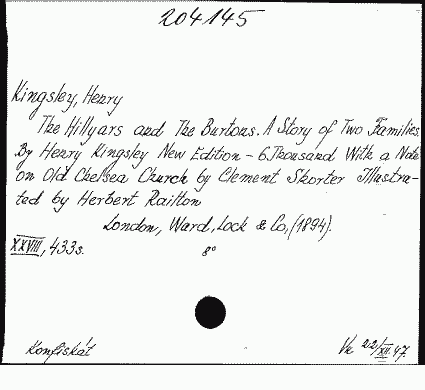 204145
Kingsley, Henry
The Hillyars and The Burtons. A Story of Two Families
By Henry Kingsley New Edition - 6. Thousand With a Note
on Old Chelsea Church by Clement Skorter Illustra-
ted by Herbert Railton
London, Ward, Lock & Co, (1894).
XXVIII, 433s. 8°
Konfiskát Vk 22/XII.47.